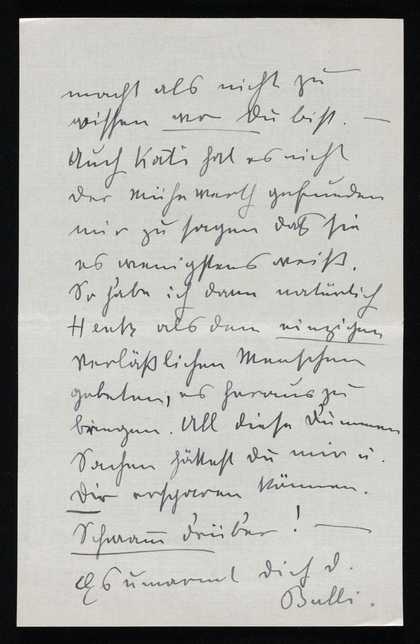 macht als nicht zu
wissen wo Du bist. —
Auch Kati hat es nicht
der Mühe werth gefunden
mir zu sagen daß sie
es wenigstens weiß.
So habe ich dann natürlich
Hentz als dem einzigen
verläßlichen Menschen
gebeten, es herauszu
bringen. All diese dummen
Sachen hättest du mir u.
Dir ersparen können.
Schwamm drüber! —
Es umarmt dich d.
Bulli.